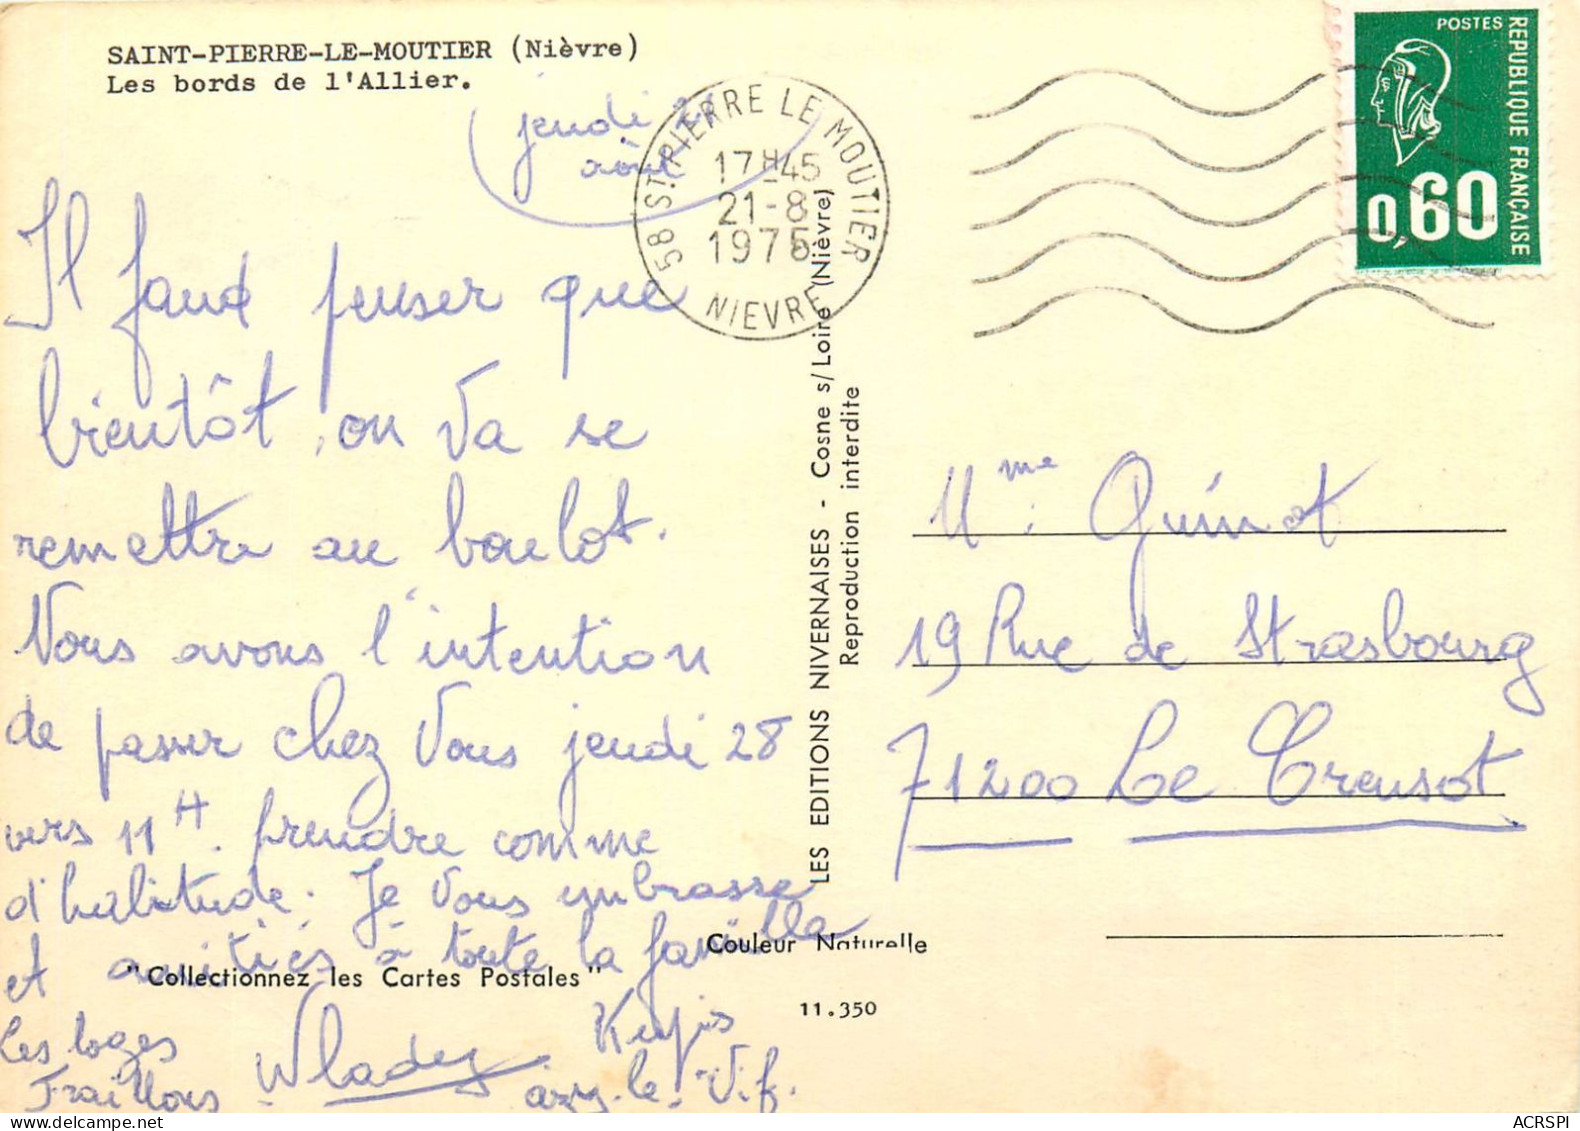 SAINT-PIERRE-LE-MOUTIER (Nièvre)
Les bords de l'Allier.
jeudi 21
août
58 ST PIERRE LE MOUTIER
17H45
21-8
1975
NIEVRE
POSTES
REPUBLIQUE FRANÇAISE
0,60
Il faut penser que
bientôt, on va se
remettre au boulot.
Nous avons l'intention
de passer chez vous jeudi 28
vers 11H. prendre comme
d'habitude. Je vous embrasse
et amitiés à toute la famille
Les loges
Wladey
LES EDITIONS NIVERNAISES - Cosne s/Loire (Nièvre)
Reproduction interdite
Mme Quinot
19 Rue de Strasbourg
71200 Le Creusot
Couleur Naturelle
"Collectionnez les Cartes Postales"
11.350
ACRSPI